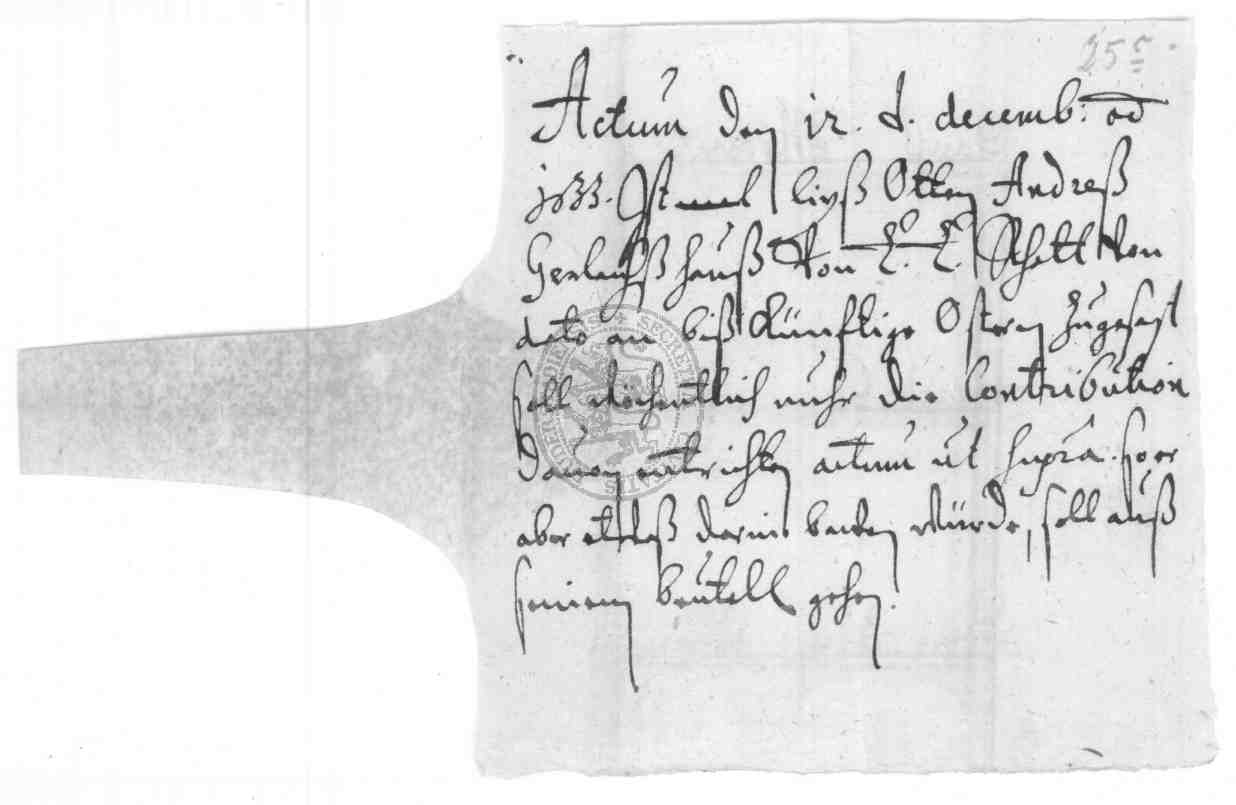 25 r
Actum den 12. d. decemb: ao
1633. Ist Otten Andreß
Gerlachß hauß von E. E. Rhatt von
dato an biß künftige Ostern zugesagt
soll wöchentlich nuhr die Contribution
dauon entrichten actum ut supra. so er
aber etwaß darin bawen würde, soll auß
seinem beutell gehen.